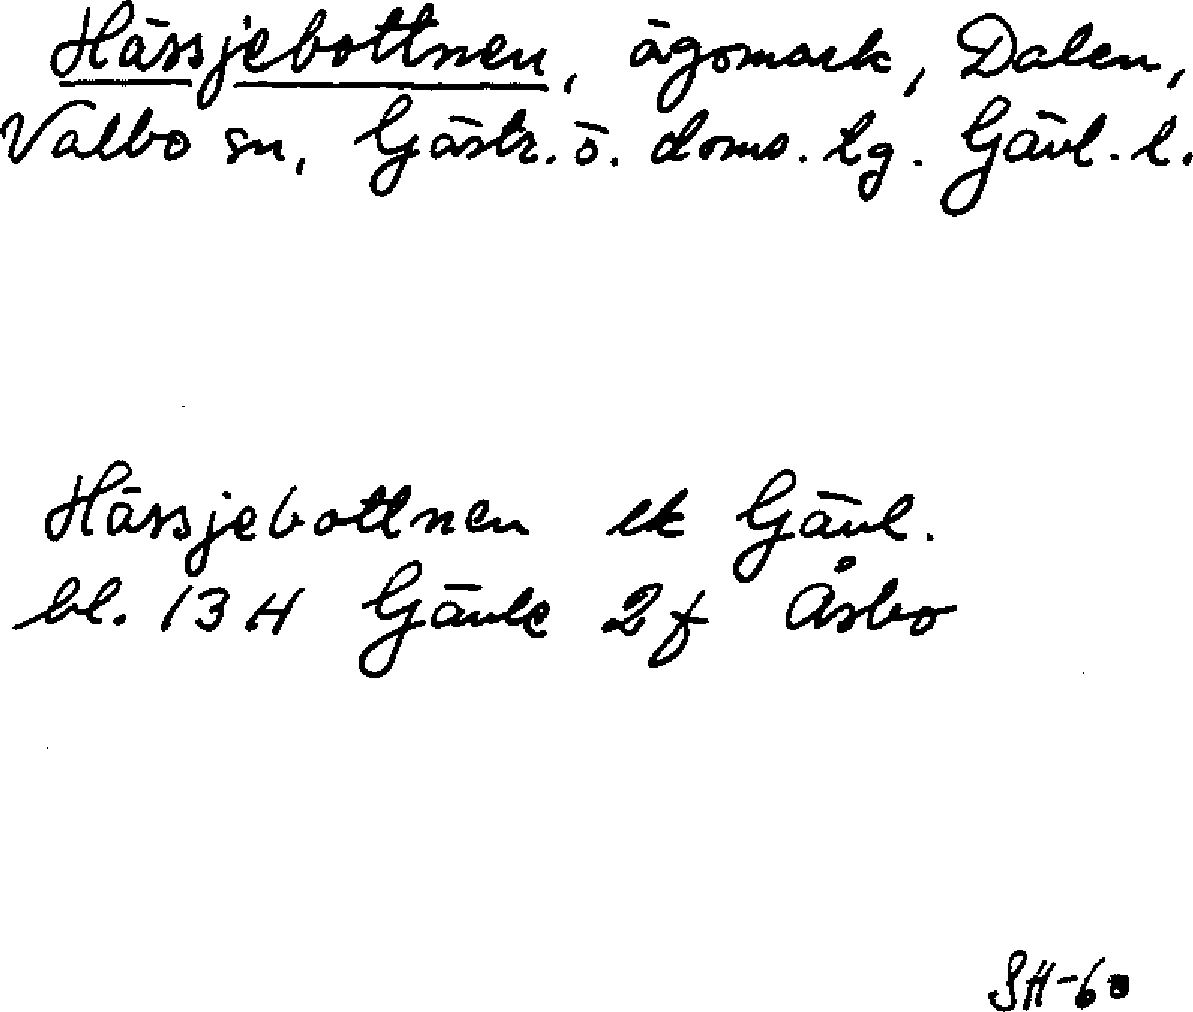 Hässjebottnen, ägomark, Dalen,
Valbo sn, Gästr. ö. doms. tg. Gävl. l.
Hässjebottnen ek Gävl.
bl. 13 H Gävle 2f Åsbo
SH-60